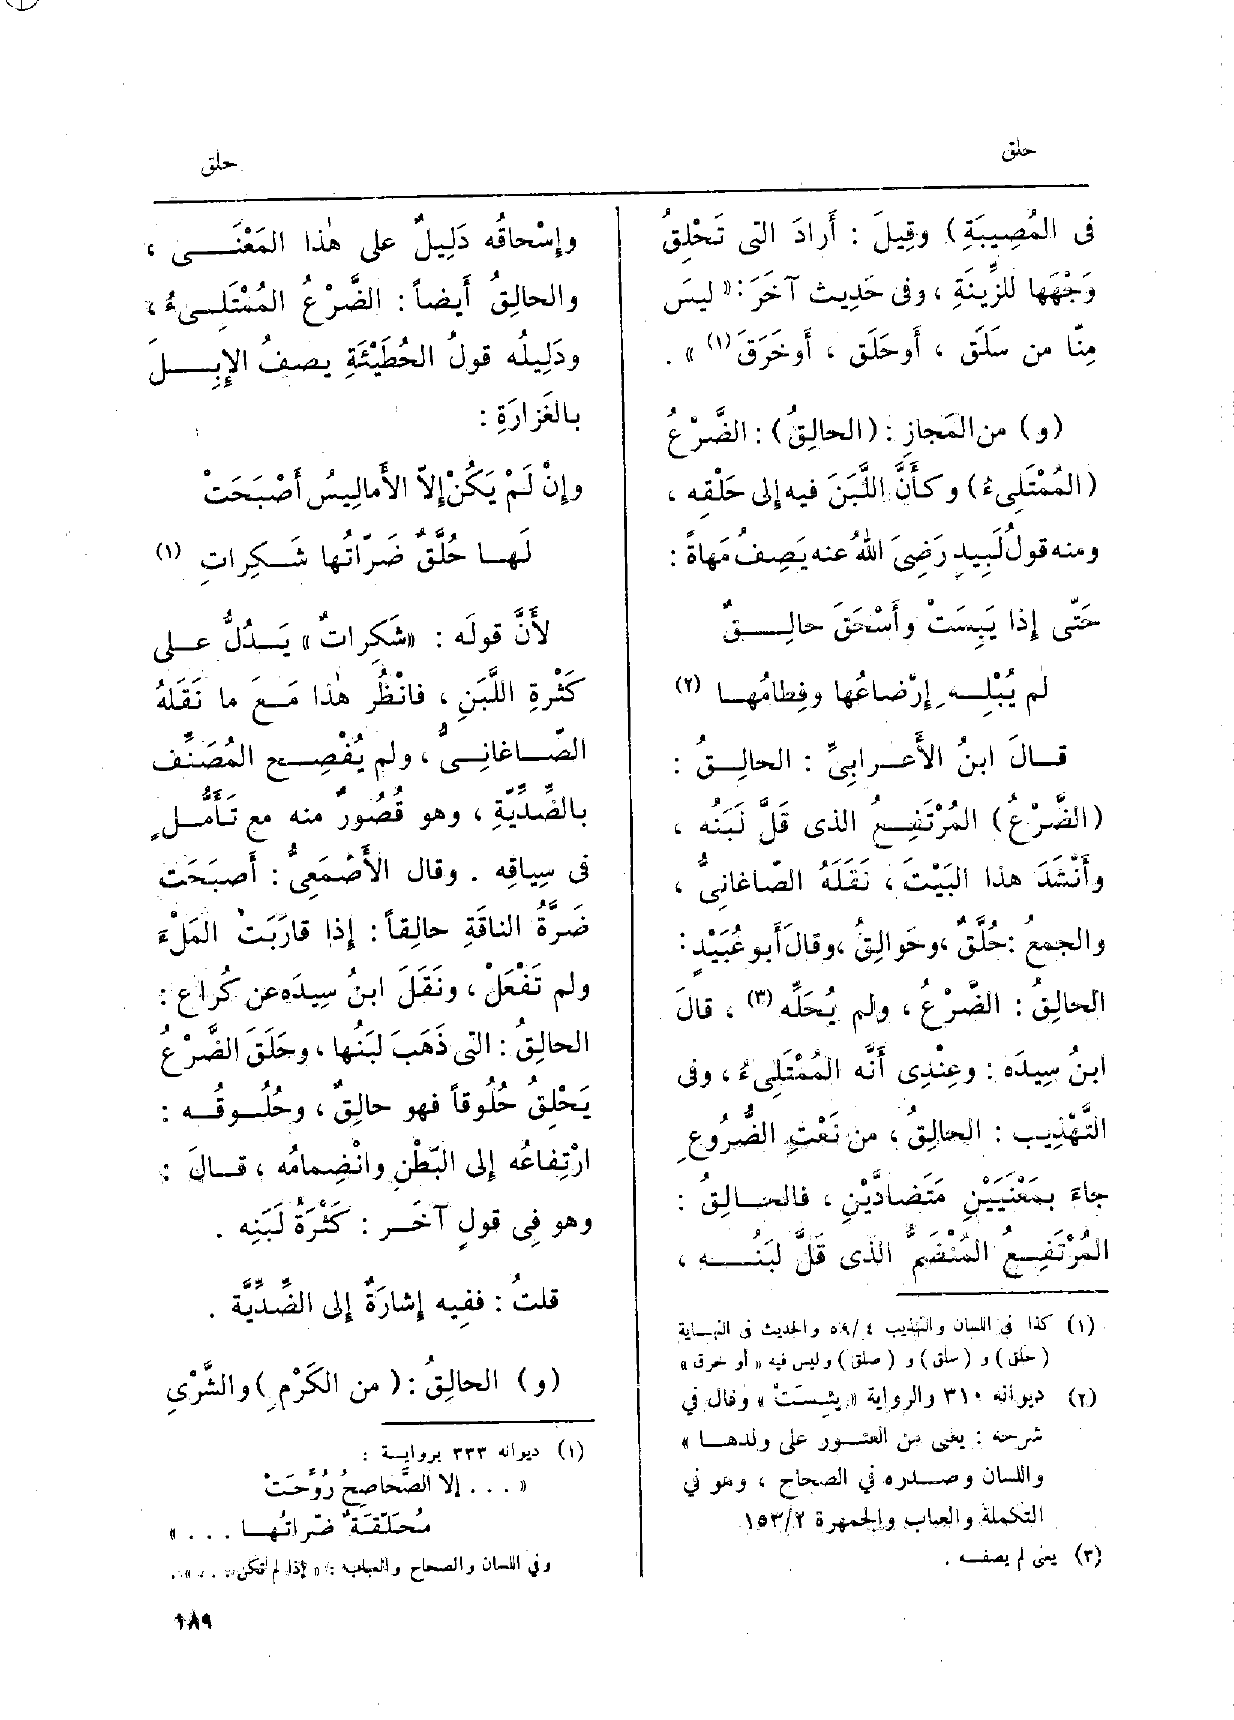 حلق
حلق
فى المُصِيبَةِ) وقِيلَ : أَرادَ التى تَحْلِقُ
وَجْهَهَا للزِّينَةِ ، وفى حَدِيث آخَرَ : « ليسَ
مِنَّا من سَلَق ، أَوحَلَق ، أَوخَرَقَ (١) » .
(و) من المَجازِ : (الحالِقُ) : الضَّرْعُ
(المُمْتَلِىءُ) وكأَنَّ اللَّبَنَ فيه إلى حَلْقِه ،
ومنه قولُ لَبِيدٍ رَضِىَ اللهُ عنه يَصِفُ مَهاةً :
حَتّى إذا يَبِسَتْ وأَسْحَقَ حالِـــقٌ
لم يُبْلِـه إرْضاعُها وفِطامُهـا (٢)
قـالَ ابنُ الأَعـرابِىِّ : الحالِـقُ :
(الضَّرْعُ) المُرْتَفِـعُ الذى قَلَّ لَبَنُه ،
وأَنْشَدَ هذا البَيْتَ ، نَقَلَهُ الصّاغانِىُّ ،
والجمعُ : حُلَّقٌ ، وحَوالِقُ ، وقالَ أَبو عُبَيْدٍ :
الحالِقُ : الضَّرْعُ ، ولم يُحَلِّه (٣) ، قالَ
ابنُ سِيدَه : وعِنْدِى أَنَّه المُمْتَلِىءُ ، وفى
التَّهْذِيب : الحالِقُ ، من نَعْتِ الضُّرُوعِ
جاءَ بمَعْنَيَيْنِ مُتَضادَّيْنِ ، فالحـالِقُ :
المُرْتَفِـعُ المُنْضَمُّ الَّذى قَلَّ لَبَنُـــه ،
(١) كذا فى اللسان والتهذيب ٤ /٥٩ والحديث فى النهـاية
(حلق) و (سلق) و (صلق) وليس فيه « أو خرق »
(٢) ديوانه ٣١٠ والرواية « يئِسَتْ » وقال فى
شرحه : يعنى من العثـور على ولدهـا »
واللسان وصـدره فى الصحاح ، وهو فى
التكملة والعباب والجمهرة ١٥٣/٢
(٣) يعنى لم يصفـه .
وإسْحاقُه دَلِيلٌ على هٰذا المَعْنَــى ،
والحالِقُ أَيضاً : الضَّرْعُ المُمْتَلِــىءُ ،
ودَلِيلُه قولُ الحُطَيْئَةِ يصفُ الإِبــلَ
بالغَزارَةِ :
وإنْ لَمْ يَكُنْ إلاّ الأَمالِيسُ أَصْبَحَتْ
لَهـا حُلَّقٌ ضَرّاتُها شَـكِراتِ (١)
لأَنَّ قولَه : «شَكِراتٌ» يَـدُلُّ عـلى
كَثْرةِ اللَّبَنِ ، فانْظُر هٰذا مَـعَ ما نَقَلَهُ
الصّـاغانِـىُّ ، ولم يُفْصِـح المُصَنِّف
بالضِّدِّيَّةِ ، وهو قُصُورٌ منه مع تَأَمُّـلٍ
فى سِياقِه . وقال الأَصْمَعِىُّ : أَصبَحَت
ضَرَّةُ الناقَةِ حالِقاً : إذا قارَبَتْ المَلْءَ
ولم تَفْعَلْ ، ونَقَلَ ابنُ سِيدَه عن كُراع :
الحالِقُ : التى ذَهَبَ لَبَنُها ، وحَلَقَ الضَّرْعُ
يَحْلِقُ حُلُوقاً فهو حالِقٌ ، وحُلُـوقُـه :
ارْتِفاعُه إلى البَطْنِ وانْضِمامُه ، قـالَ :
وهو فِى قولٍ آخَـر : كَثْرَةُ لَبَنِه .
قلتُ : ففيه إشارَةٌ إلى الضِّدِّيَّة .
(و) الحالِقُ : (من الكَرْمِ) والشَّرْىِ
(١) ديوانه ٣٣٣ بروايـة :
« . . . إلا الصَّحاصِحُ رُوِّحَتْ
مُحَلِّقَةٌ ضَرّاتُهـا . . . »
وفى اللسان والصحاح والعباب : « إذا لم تكن . . . » .
١٨٩